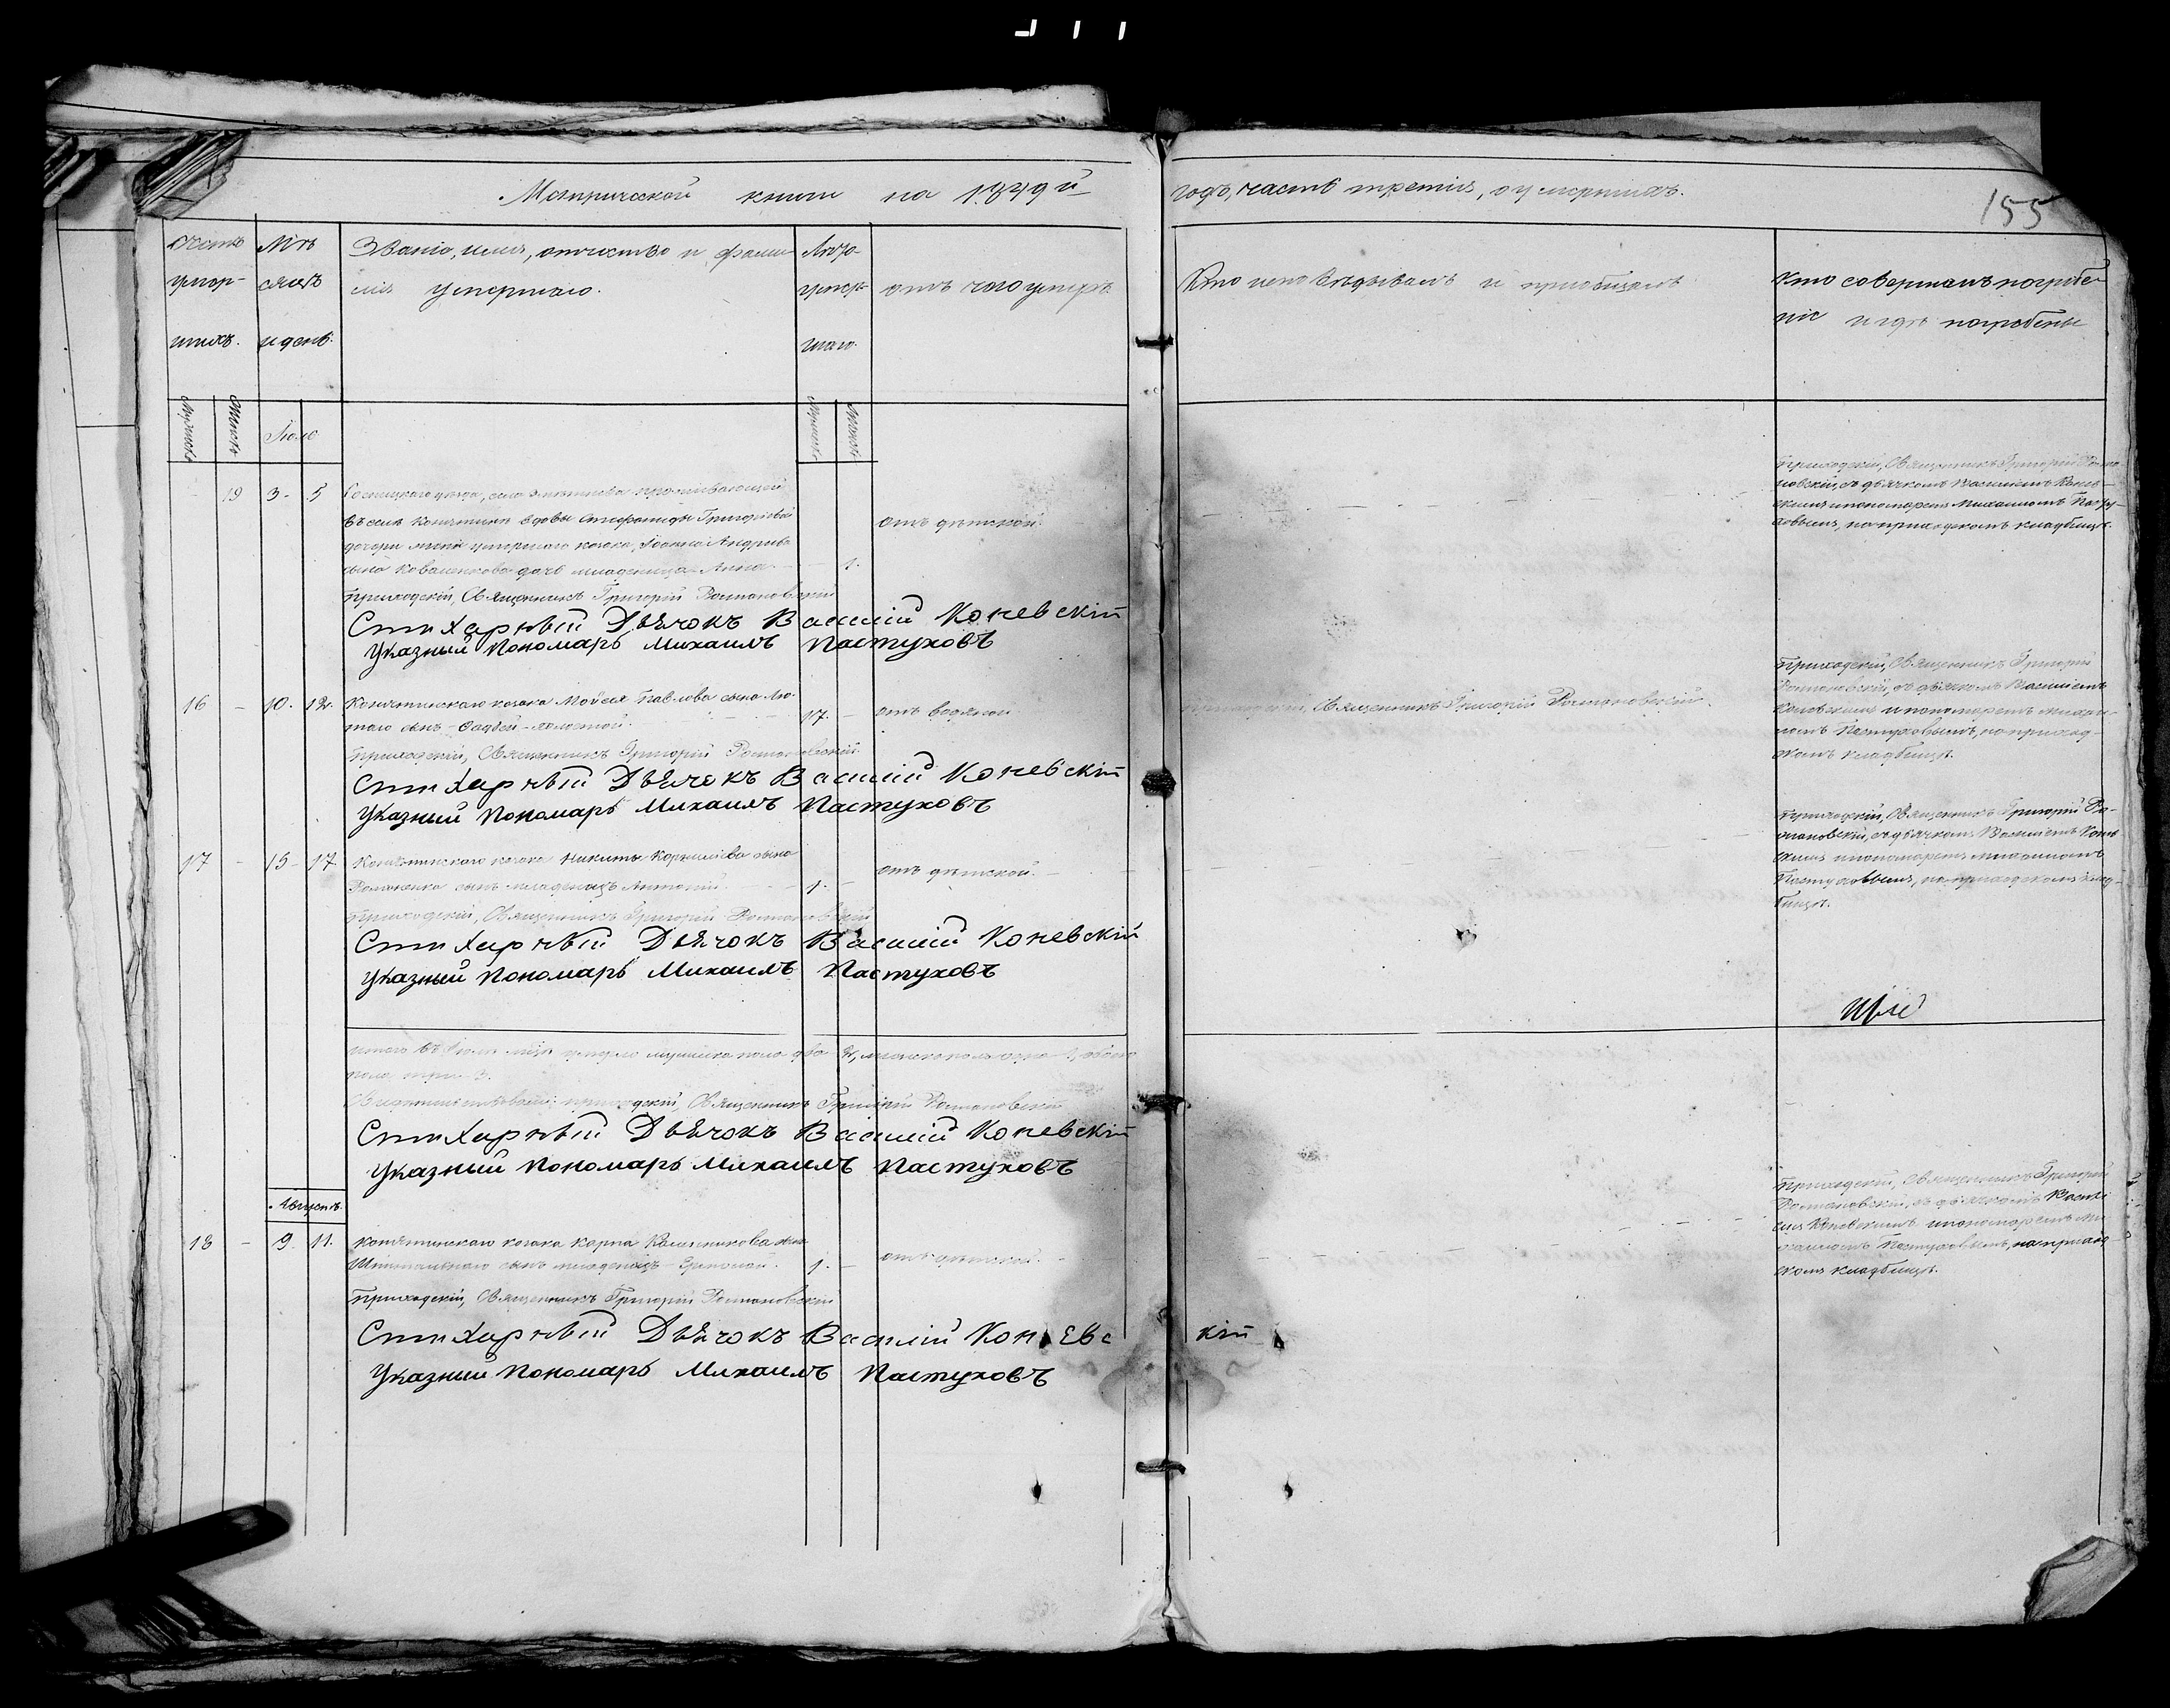 Метрической книги на 1849й
годъ, часть третія, о умершихъ.
155
Счетъ умер- шихъ.
Мѣ сяцъ и день.
Званіе, имя, отчество и фами
лія умершаго.
Лѣта умер- шаго.
отъ чего умеръ.
Кто исповѣдывалъ и пріобщалъ
Кто совершалъ погребе
ніе и гдѣ погребены
Мужеск
Женск
Іюль
Мужеск
Женск
19 3. 5
уѣзда, села проживающей
въ селѣ вдовы Стефаниды Григоріевой
дочери умершаго козака, Іоанна Андреева
сына Коваленкова дочь младеница Анна
1.
отъ дѣтской.
Приходскій, Священникъ Григорій
новскій, съ дьячкомъ Василіемъ Конев-
скимъ и пономаремъ Михаиломъ Пасту-
ховымъ, на приходскомъ кладбищѣ.
Приходскій, Священникъ Григорій Романовскій
Стихарный Дьячокъ Василій Коневскій
Указный Пономарь Михаилъ Пастуховъ
16 - 10. 12.
козака Мойсея Павлова сына Лю-
таго сынъ
17. -
отъ водяной
Приходскій, Священникъ Григорій Романовскій.
Приходскій, Священникъ Григорій
Романовскій, съ дьячкомъ Василіемъ
Коневскимъ и пономаремъ Михаи-
ломъ Пастуховымъ, на приход-
скомъ кладбищѣ.
Приходскій, Священникъ Григорій Романовскій
Стихарный Дьячокъ Василій Коневскій
Указный Пономарь Михаилъ Пастуховъ
17 - 15 - 17
козака Никиты Корниліева сына
Романенка сынъ младенецъ Антоній.
1. -
отъ дѣтской.
Приходскій, Священникъ Григорій Ро-
мановскій, съ дьячкомъ Василіемъ Конев
скимъ и пономаремъ Михаиломъ
Пастуховымъ, на приходскомъ клад-
бищѣ.
Приходскій, Священникъ Григорій Романовскій
Стихарный Дьячокъ Василій Коневскій
Указный Пономарь Михаилъ Пастуховъ
итого въ Іюлѣ м-цѣ умерло мужеска пола два 2, женска пола одна 1, обоего
пола три 3.
приходскій, Священникъ Григорій Романовскій
Стихарный Дьячокъ Василій Коневскій
Указный Пономарь Михаилъ Пастуховъ
Августъ.
18 - 9. 11.
козака Карпа сына
сынъ младенецъ
1. -
отъ дѣтской.
Приходскій, Священникъ Григорій
Романовскій, съ дьячкомъ Васил
іемъ Коневскимъ и пономаремъ Ми
хаиломъ Пастуховымъ, на приход
скомъ кладбищѣ.
Приходскій, Священникъ Григорій Романовскій
Стихарный Дьячокъ Василій Коневскій
Указный Пономарь Михаилъ Пастуховъ